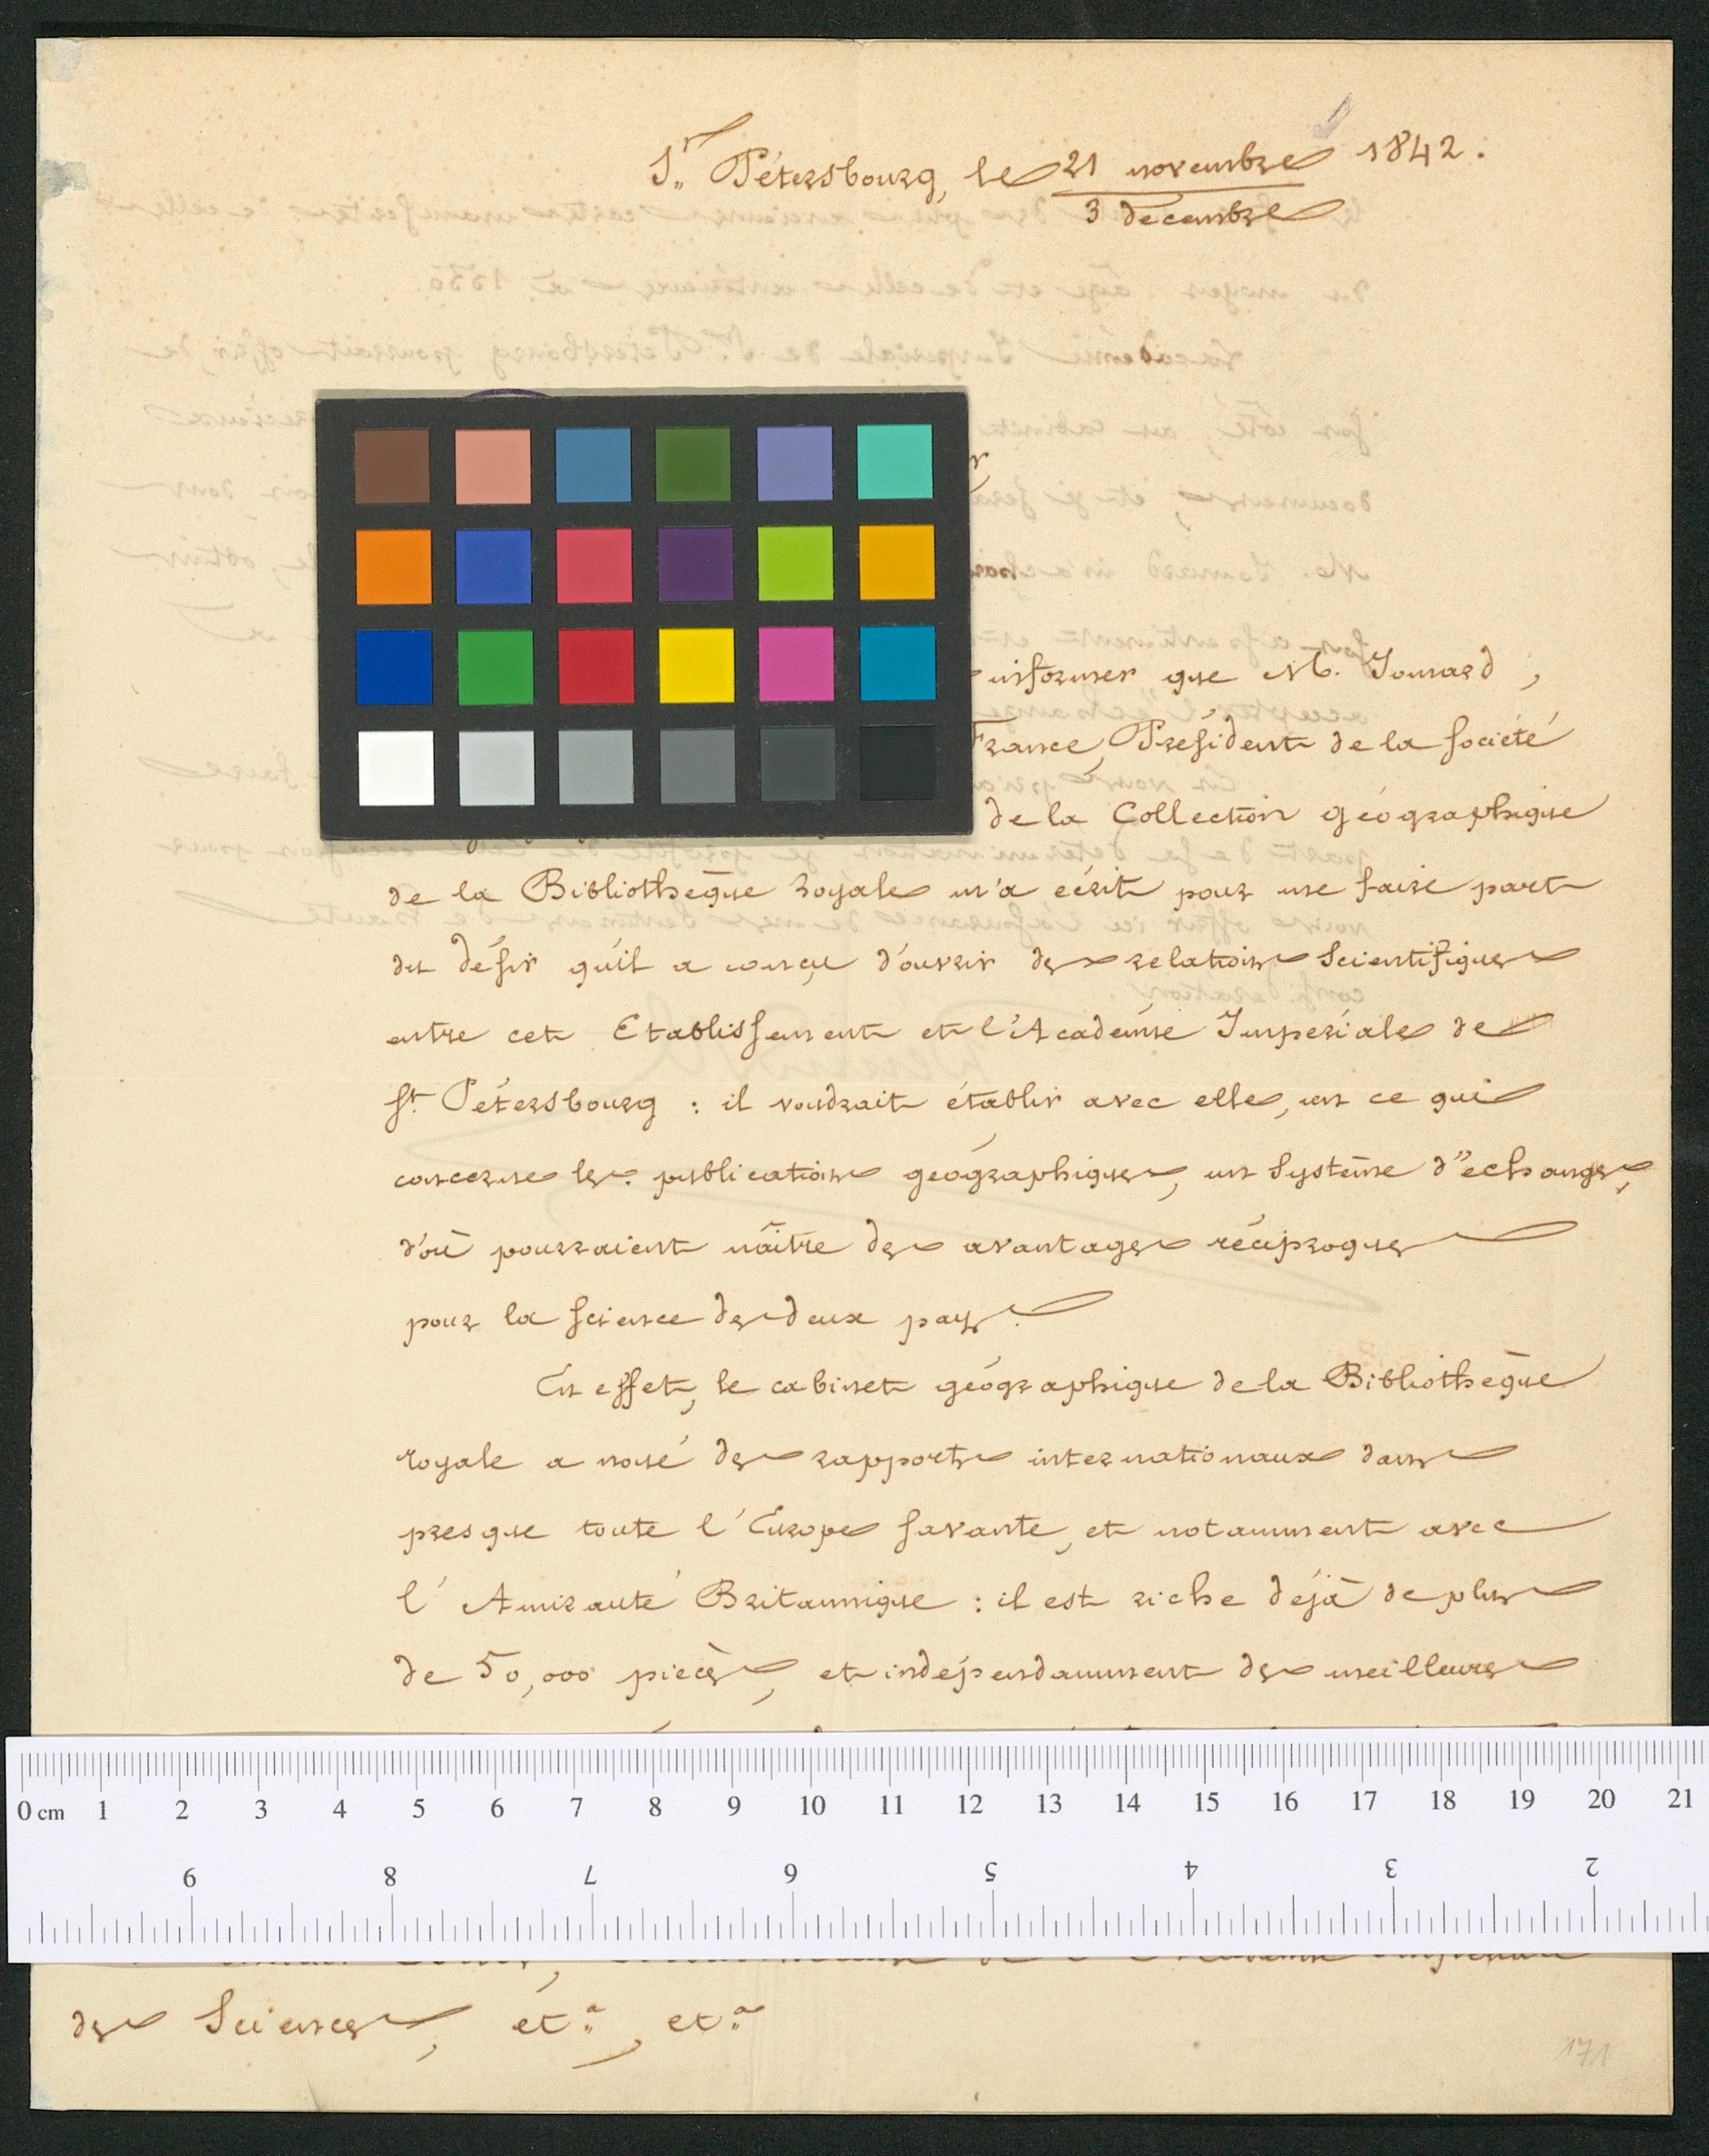 St. Pétersbourg, le 21 novembre 1842.
3 decembre
informer que M. Jomard,
France, Président de la Société
de la Collection géographique
de la Bibliothèque royale m'a écrit pour me faire part
du désir qu'il a conçu d'ouvrir des relations Scientifiques
entre cet Etablissement et l'Academie Imperiale de
St. Pétersbourg : il voudrait établir avec elle, en ce qui
concerne les publications géographiques, un Système d'echanges,
d'où pourraient naître des avantages réciproques
pour la Science des deux pays.
En effet, le cabinet géographique de la Bibliothèque
royale a noué des rapports internationaux dans
presque toute l'Europe savante, et notamment avec
l'Amirauté Britannique : il est riche déjà de plus
de 50,000 pièces, et indépendamment des meilleures
0 cm 1 2 3 4 5 6 7 8 9 10 11 12 13 14 15 16 17 18 19 20 21
9 8 7 6 5 4 3 2
des Sciences, etª, etª
171